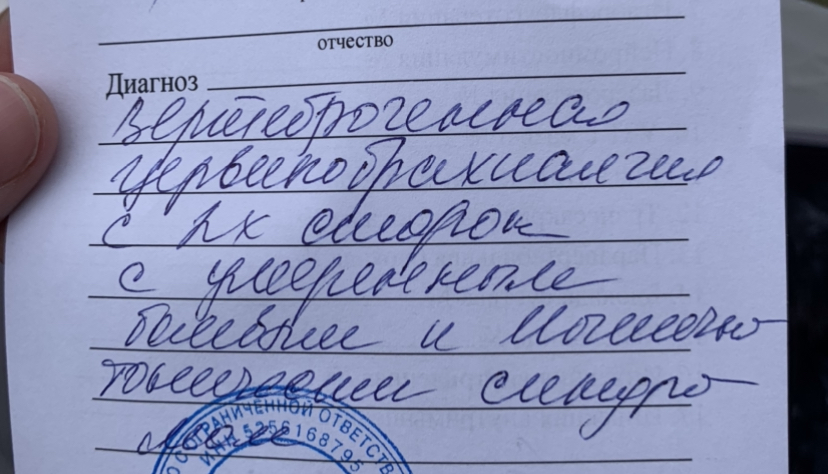 отчество
Диагноз
Вертеброгенная
цервикобрахиалгия
с 2х сторон
с умеренным
болевым и мышечно
тоническим синдро
мами
ОГРАНИЧЕННОЙ ОТВЕТСТВ
ИНН 5256168795